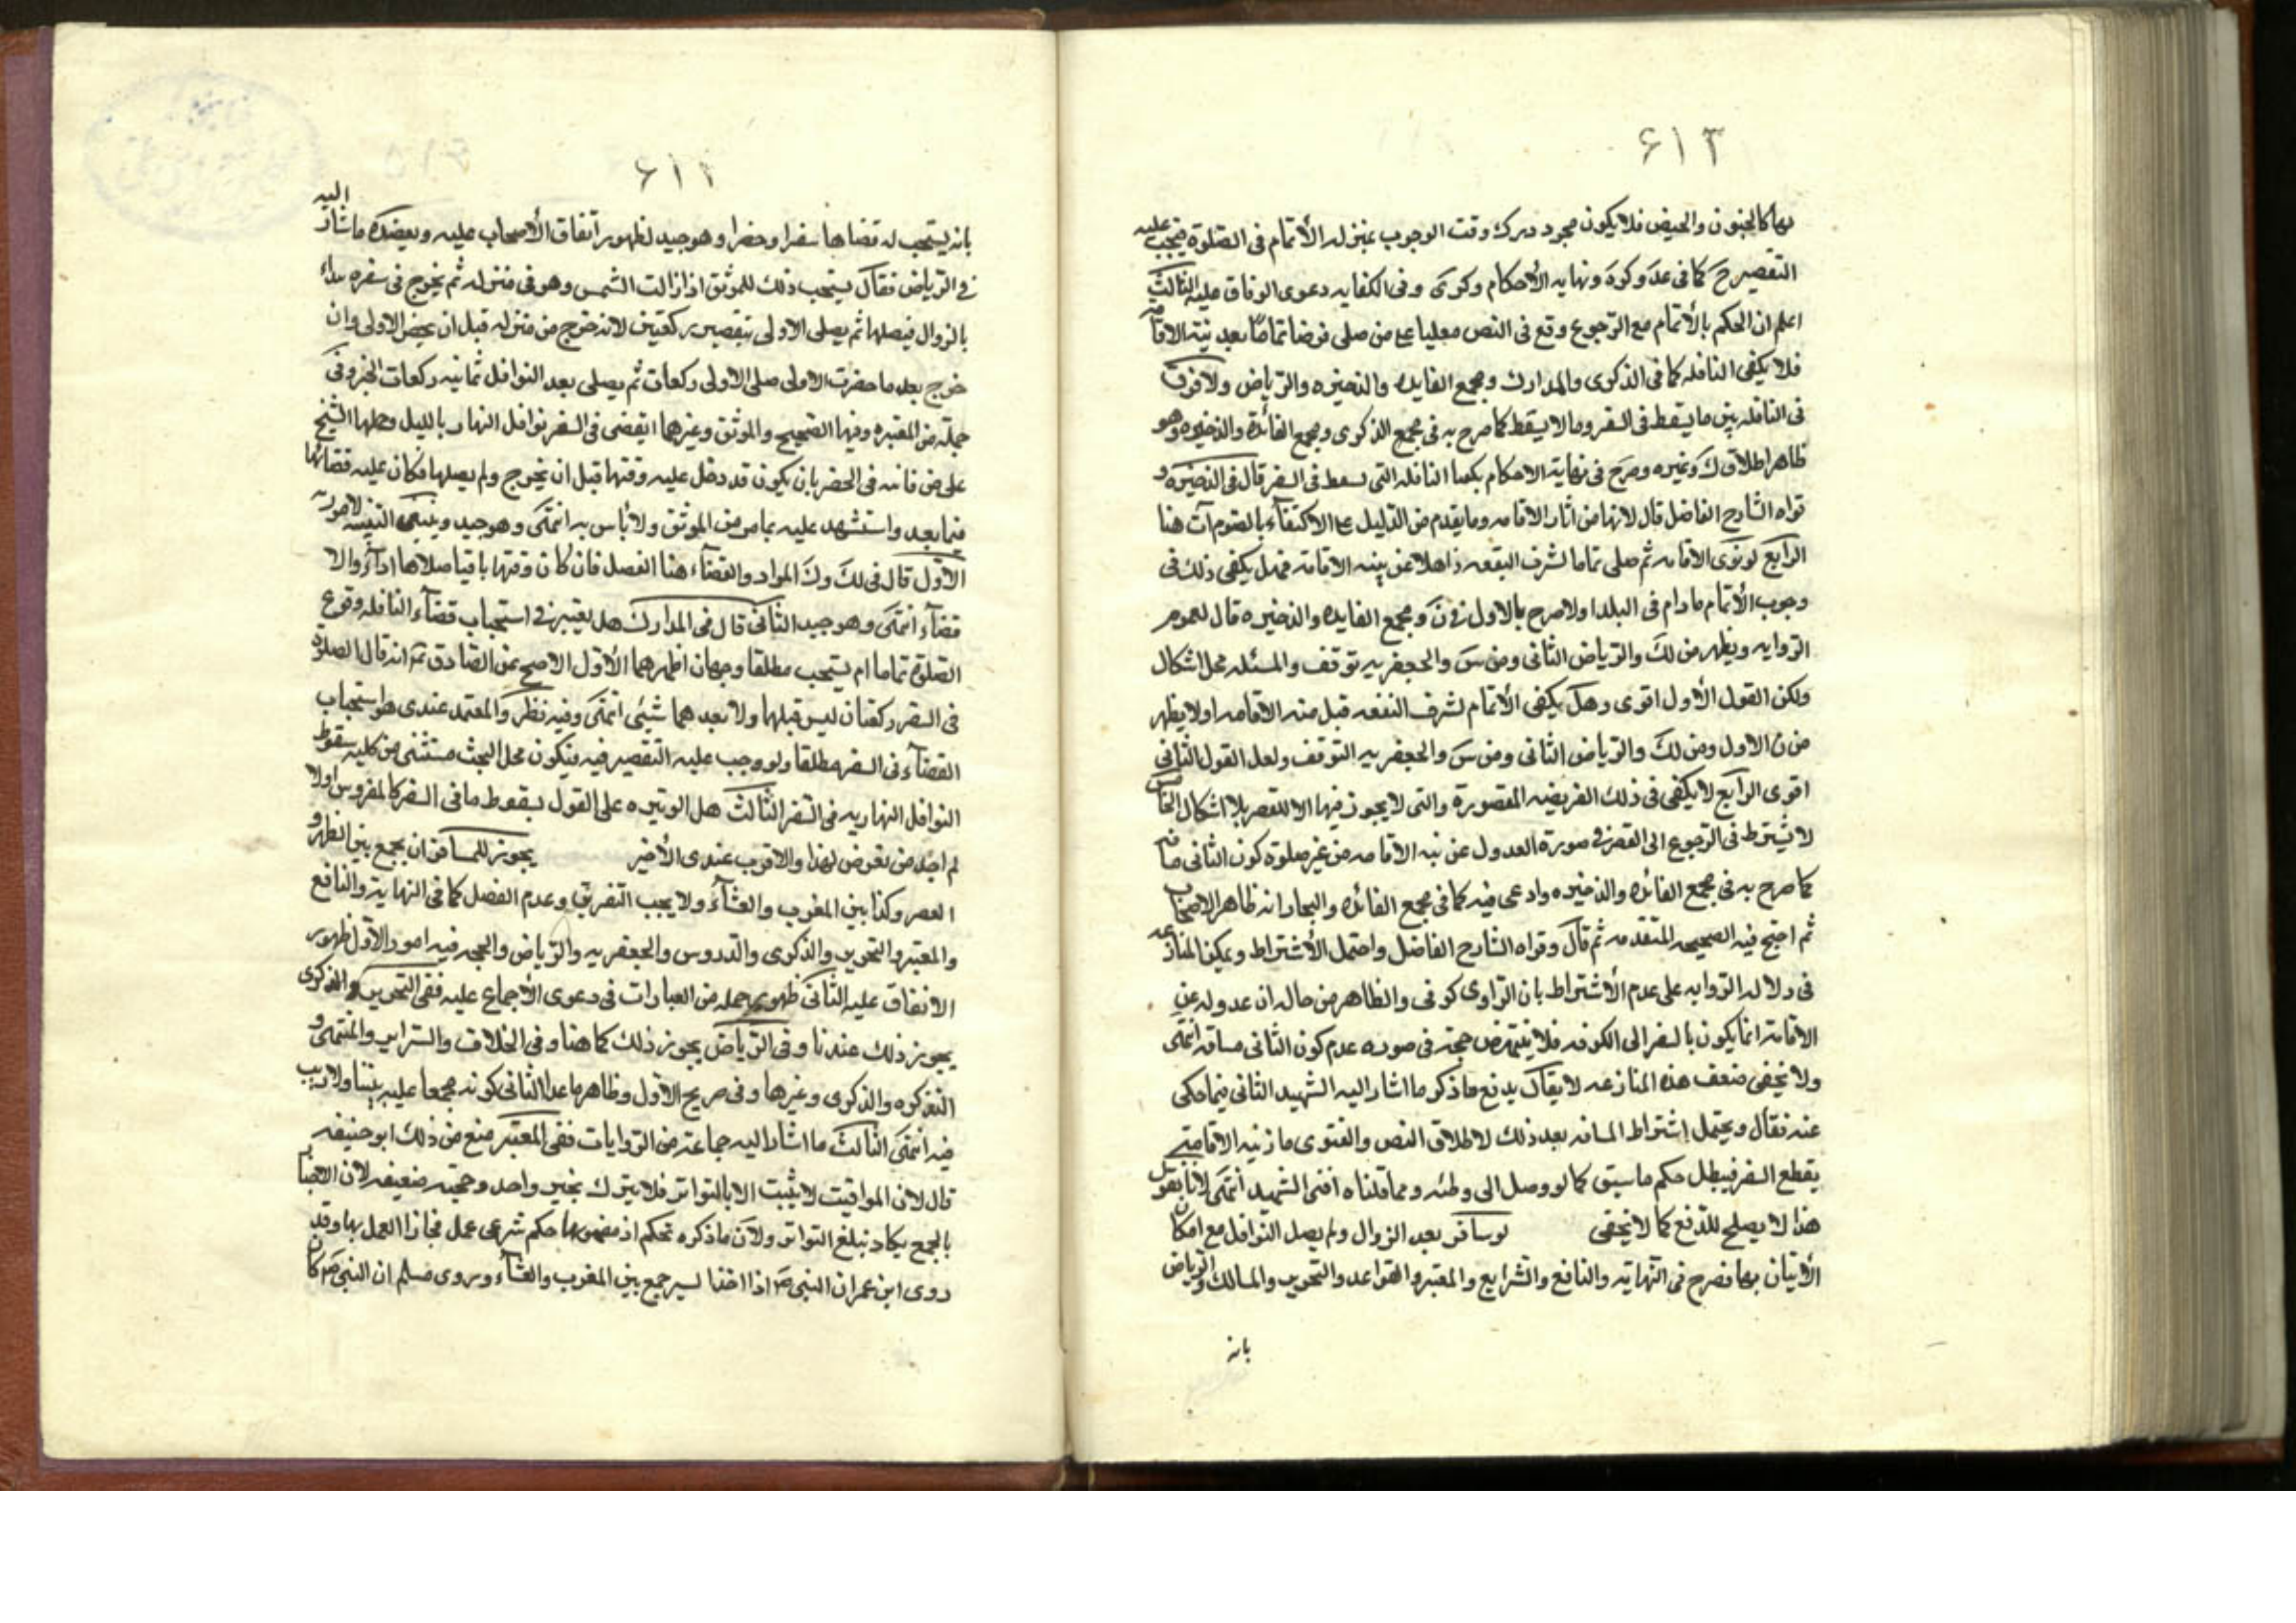 ۶۱۳
بها كالجنون والحيض فلا يكون مجرد درك وقت الوجوب بمنزله الأتمام فى الصلوة فيجب عليه
التقصير ح كما فى عد وكره ونهايه الأحكام وكرى وفى الكفايه دعوى الوفاق عليه الثالث
اعلم ان الحكم بالأتمام مع الرجوع وقع فى النص معلقا على من صلى فرضا تماما بعد نية الاقامه
فلا يكفى النافله كما فى الذكرى والمدارك ومجمع الفايده والذخيره والرياض ولا فرق
فى النافله بين ما يسقط فى السفر وما لا يسقط كما صرح به فى مجمع الذكرى ومجمع الفائدة والذخيره وهو
ظاهر اطلاق ك وغيره وصرح فى نهاية الاحكام بكفا النافله التى تسقط فى السفر قال فى الذخيره و
قواه الشارح الفاضل قال لانها من اثار الاقامه وما يقدم من الدليل على الاكتفاء بالصوم آت هنا
الرابع لو نوى الاقامه ثم صلى تماما لشرف البقعه ذاهلا عن نيه الاقامه فهل يكفى ذلك فى
وجوب الأتمام مادام فى البلد او لا صرح بالاول فى ن ومجمع الفايده والذخيره قال لعموم
الروايه ويظهر من لك والرياض الثانى ومن س والجعفريه توقف والمسئله محل اشكال
ولكن القول الأول اقوى وهل يكفى الأتمام لشرف البقعه قبل نيه الاقامه او لا يظهر
من ن الاول ومن لك والرياض الثانى ومن س والجعفريه التوقف ولعل القول الثانى
اقوى الرابع لا يكفى فى ذلك الفريضه المقصورة والتى لا يجوز فيها الا القصر بلا اشكال الخامس
لا يشترط فى الرجوع الى القصر فى صورة العدول عن نيه الاقامه من غير صلوة كون الثانى مسافه
كما صرح به فى مجمع الفائده والذخيره وادعى فيه كما فى مجمع الفائده والبحار انه ظاهر الاصحاب
ثم احتج فيه الصحيحه المتقدمه ثم قال وقواه الشارح الفاضل واحتمل الأشتراط ويمكن المنازعه
فى دلاله الروايه على عدم الأشتراط بان الراوى كوفى والظاهر من حاله ان عدوله عن
الاقامة انما يكون بالسفر الى الكوفه فلا ينتهض حجة فى صوره عدم كون الثانى مسافه انتهى
ولا يخفى ضعف هذه المنازعه لا يقال يدفع ما ذكر ما اشار اليه الشهيد الثانى فيما حكى
عنه فقال ويحتمل اشتراط المسافه بعد ذلك لاطلاق النص والفتوى ما ن نيه الاقامة
يقطع السفر فيبطل حكم ما سبق كما لو وصل الى وطنه ومما قلناه افتى الشهيد انتهى لانا نقول
هذا لا يصلح للدفع كما لا يخفى لو سافر بعد الزوال ولم يصل النوافل مع امكان
الأتيان بها فصرح فى النهاية والنافع والشرايع والمعتبر والقواعد والتحرير والمسالك والرياض
بانه
۶۱۴
بانه يستحب له قضاها سفرا وحضرا وهو جيد لظهور اتفاق الأصحاب عليه ويعضده ما شار اليه
فى الرياض فقال يستحب ذلك للموثق اذا زالت الشمس وهو فى منزله ثم يخرج فى سفره بداء
بالزوال فيصلها ثم يصلى الاولى بتقصير ركعتين لانه خرج من منزله قبل ان يحضر الاولى وان
خرج بعد ما حضرت الاولى صلى الاولى ركعات ثم يصلى بعد النوافل ثمانيه ركعات الخبر وفى
جملة من المعتبره وفيها الصحيح والموثق وغيرهما ايقضى فى السفر نوافل النهار بالليل وحملها الشيخ
على من فاته فى الحضر بان يكون قد دخل عليه وقتها قبل ان يخرج ولم يصلها فكان عليه قضائها
فيما بعد واستشهد عليه بما مر من الموثق ولا بأس به انتهى وهو جيد وينبغى التنبيه لامور
الاول قال فى لك وك المراد والقضاء هنا الفصل فان كان وقتها باقيا صلاها اداء والا
قضاء انتهى وهو جيد الثانى قال فى المدارك هل يعتبر فى استحباب قضاء النافله وقوع
الصلوة تماما ام يستحب مطلقا وجهان اظهرهما الأول الاصح عن الصادق ع انه قال الصلوة
فى السفر ركعتان ليس قبلها ولا بعدهما شيئى انتهى وفيه نظر والمعتمد عندى هو استحباب
القضاء فى السفر مطلقا ولو وجب عليه التقصير فيه فيكون محل البحث مستثنى من كليه سقوط
النوافل النهاريه فى السفر الثالث هل الوتيره على القول بسقوط ما فى السفر كالمفروض او لا
لم اجد من تعرض لهذا والاقرب عندى الأخير يجوز للمسافر ان يجمع بين الظهر و
العصر وكذا بين المغرب والعشاء ولا يجب التفريق وعدم الفصل كما فى النهاية والنافع
والمعتبر والتحرير والذكرى والدروس والجعفريه والرياض والحجه فيه امور الأول ظهور
الاتفاق عليه الثانى ظهور جمله من العبارات فى دعوى الأجماع عليه ففى التحرير والذكرى
يجوز ذلك عندنا وفى الرياض يجوز ذلك كما هنا وفى الخلاف والسراير والمنتهى و
التذكره والذكرى وغيرها وفى صريح الأول وظاهر ما عدا الثانى كونه مجمعا عليه بيننا ولا ريب
فيه انتهى الثالث ما اشار اليه جماعة من الروايات ففى المعتبر منع من ذلك ابو حنيفه
قال لان المواقيت لا يثبت الا بالتواتر فلا يترك بخبر واحد وحجته ضعيفه لان الاخبار
بالجمع يكاد تبلغ التواتر ولان ما ذكره تحكم اذ مضمونها حكم شرعى عمل فجاز العمل بها وقد
روى ابن عمر ان النبى ص اذا اخذ السير جمع بين المغرب والعشاء وروى مسلم ان النبى ص كان